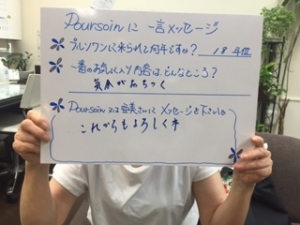 Poursoinに一言メッセージ
プルソワンに来られて何年ですか? 18年位
一番のお気に入り内容はどんなところ?
Poursoin 又は
さんに メッセージを下さい
これからもよろしく